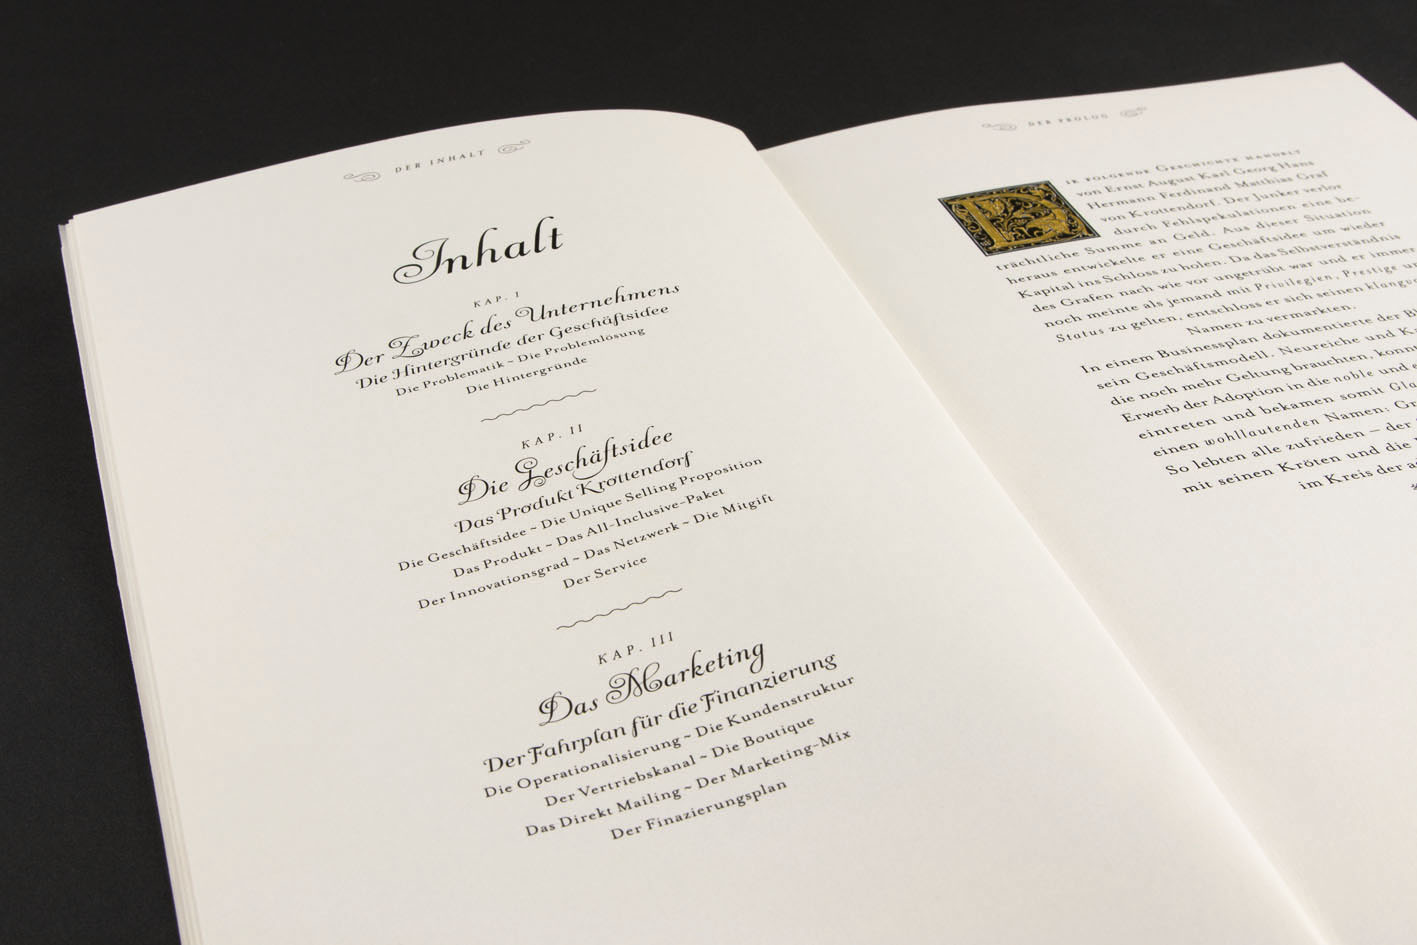 DER INHALT
Inhalt
KAP. I
Der Zweck des Unternehmens
Die Hintergründe der Geschäftsidee
Die Problematik ~ Die Problemlösung
Die Hintergründe
KAP. II
Die Geschäftsidee
Das Produkt Krottendorf
Die Geschäftsidee ~ Die Unique Selling Proposition
Das Produkt ~ Das All-Inclusive-Paket
Der Innovationsgrad ~ Das Netzwerk ~ Die Mitgift
Der Service
KAP. III
Das Marketing
Der Fahrplan für die Finanzierung
Die Operationalisierung ~ Die Kundenstruktur
Der Vertriebskanal ~ Die Boutique
Das Direkt Mailing ~ Der Marketing-Mix
Der Finazierungsplan
DER PROLOG
Die folgende Geschichte handelt
von Ernst August Karl Georg Hans
Hermann Ferdinand Matthias Graf
von Krottendorf. Der Junker verlor
durch Fehlspekulationen eine be-
trächtliche Summe an Geld. Aus dieser Situation
heraus entwickelte er eine Geschäftsidee um wieder
Kapital ins Schloss zu holen. Da das Selbstverständnis
des Grafen nach wie vor ungetrübt war und er immer
noch meinte als jemand mit Privilegien, Prestige
Status zu gelten, entschloss er sich seinen
Namen zu vermarkten.
In einem Businessplan dokumentierte der
sein Geschäftsmodell. Neureiche und
die noch mehr Geltung brauchten,
Erwerb der Adoption in die noble und
eintreten und bekamen somit
einen wohllautenden Namen:
So lebten alle zufrieden – der
mit seinen Kröten und die
im Kreis der